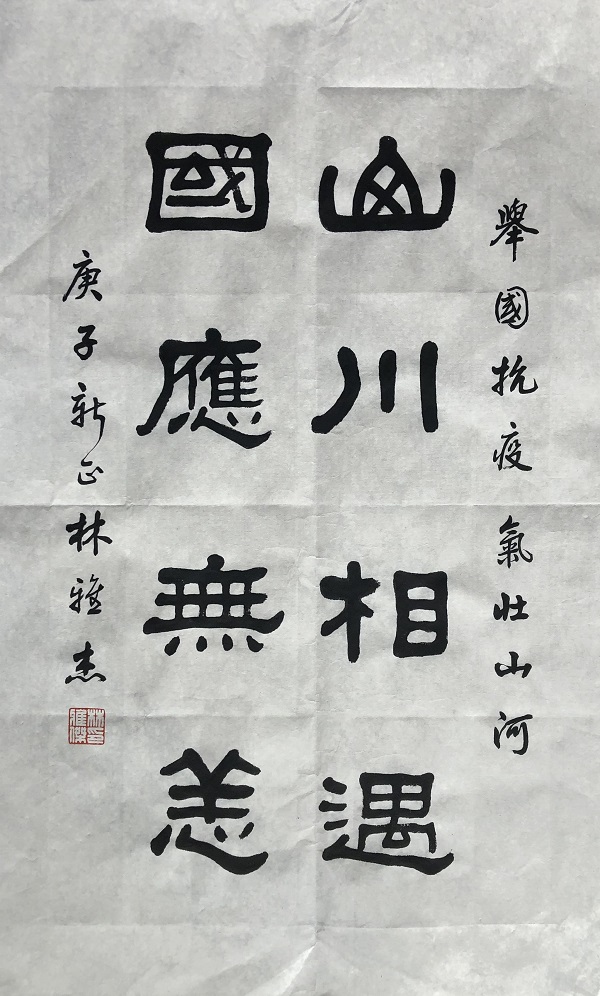 舉國抗疫氣壮山河
山川相遇
國應無恙
庚子新正林雅杰
林印雅傑